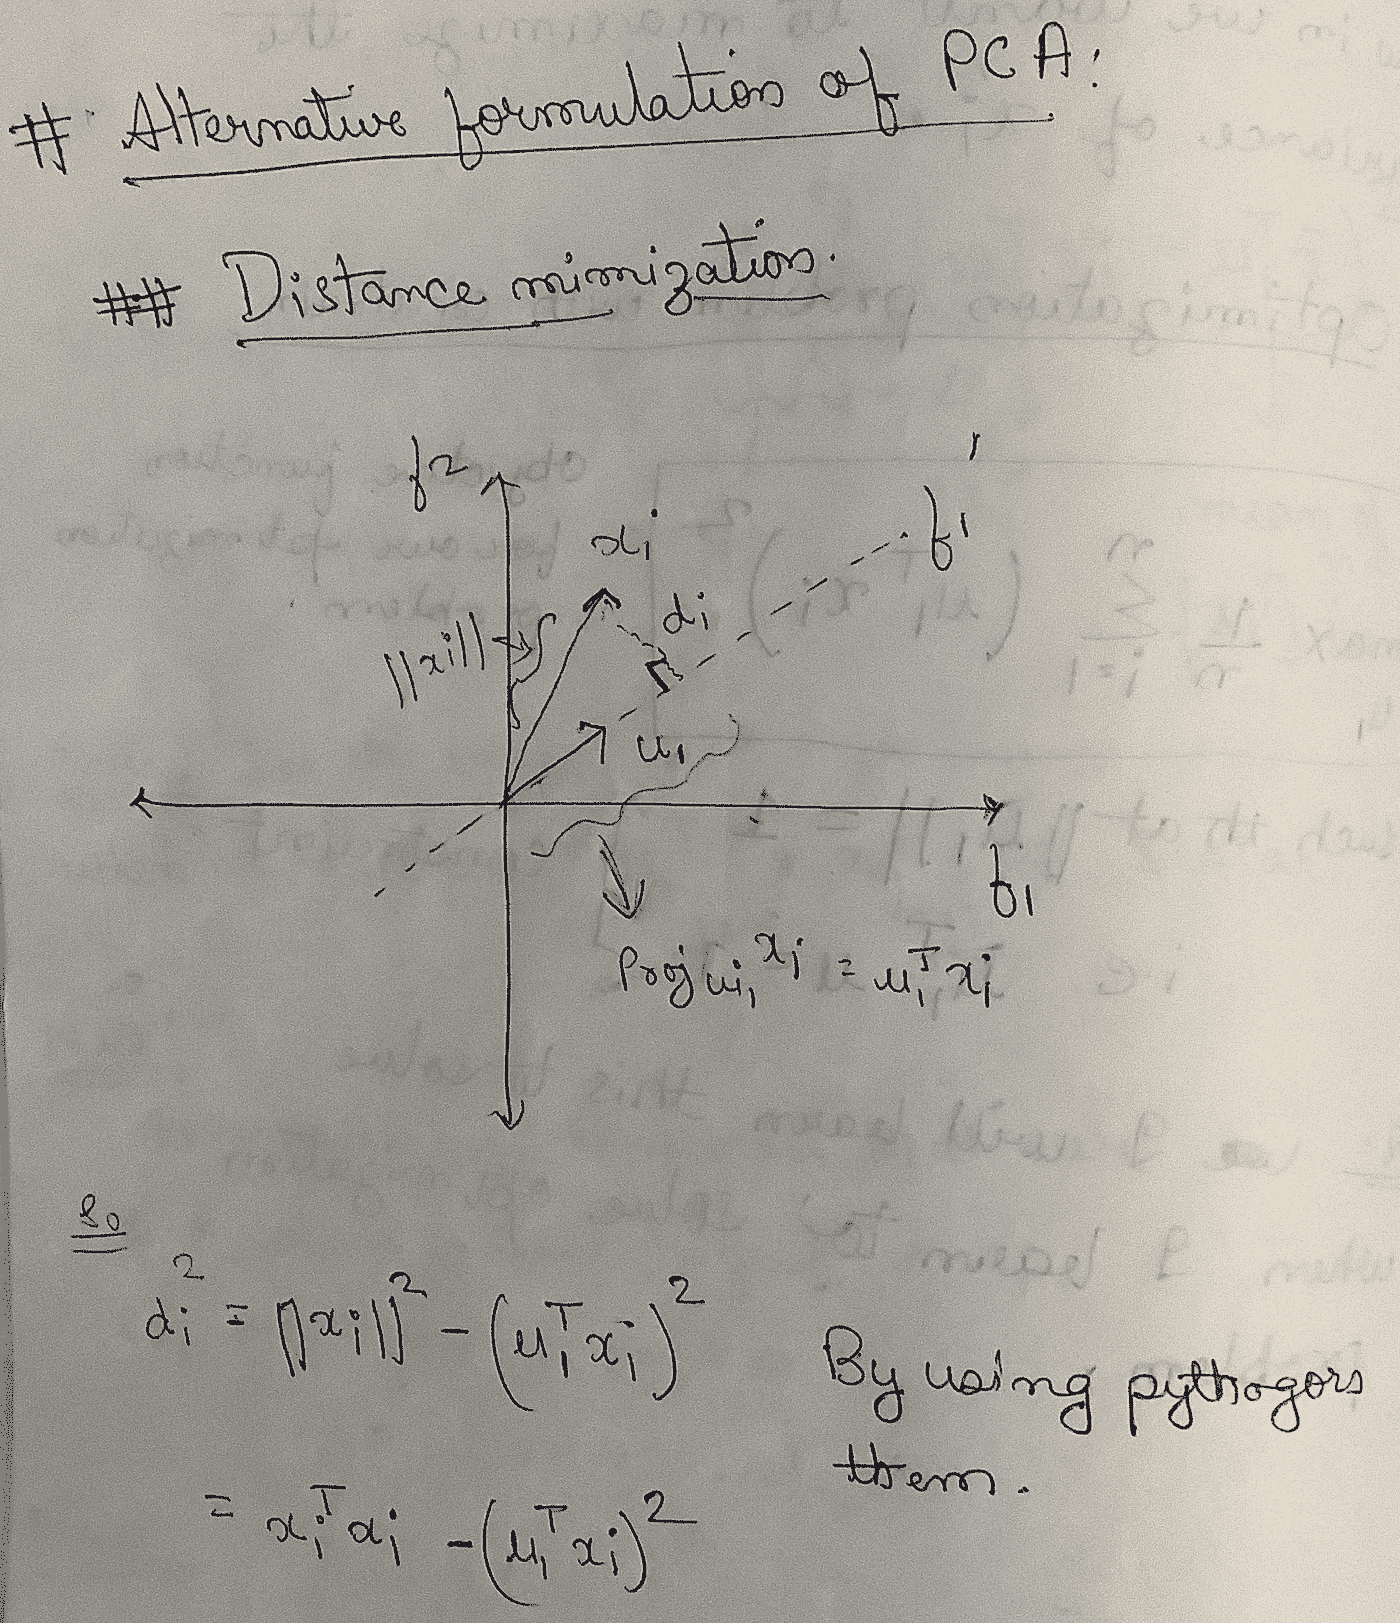 # Alternative formulation of PCA:
## Distance mimization.
f2
xi
f1'
di
||xi||
u1
f1
Proj ui, xi = u1^T xi
So
di^2 = ||xi||^2 - (u1^T xi)^2
By using pythogors
them.
= xi^T xi - (u1^T xi)^2